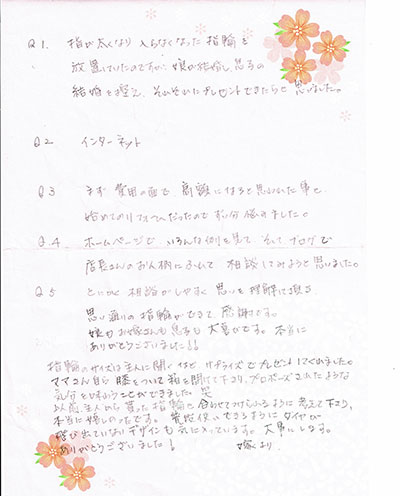 Q1. 指が太くなり入らなくなった指輪を
放置していたのですが、娘が結婚し、息子の
結婚を控え、それぞれにプレゼントできたらと思いました。
Q2 インターネット
Q3 まず費用の面で高額になると思っていた事と
始めてのリフォームだったのでずい分悩みました。
Q4. ホームページでいろんな例を見て、そしてブログで
店長さんのお人柄にふれて相談してみようと思いました。
Q5 とにかく相談がしやすく思いを理解し頂き
思い通りの指輪ができて、感謝です。
娘もお嫁さんも息子も大喜びです。本当に
ありがとうございました!!
指輪のサイズは主人に聞くほどサプライズでプレゼントしてくれました。
ママさん自ら膝をついて箱を開けて下さり、プロポーズされたような
気分を味あうことができました 笑
以前主人から貰った指輪と合わせてつけられるように考えて下さり、
本当に嬉しかったです。普段使いできるようにダイヤが
飛び出ていないデザインも気に入っています。大事にします。
ありがとうございました! 嫁より